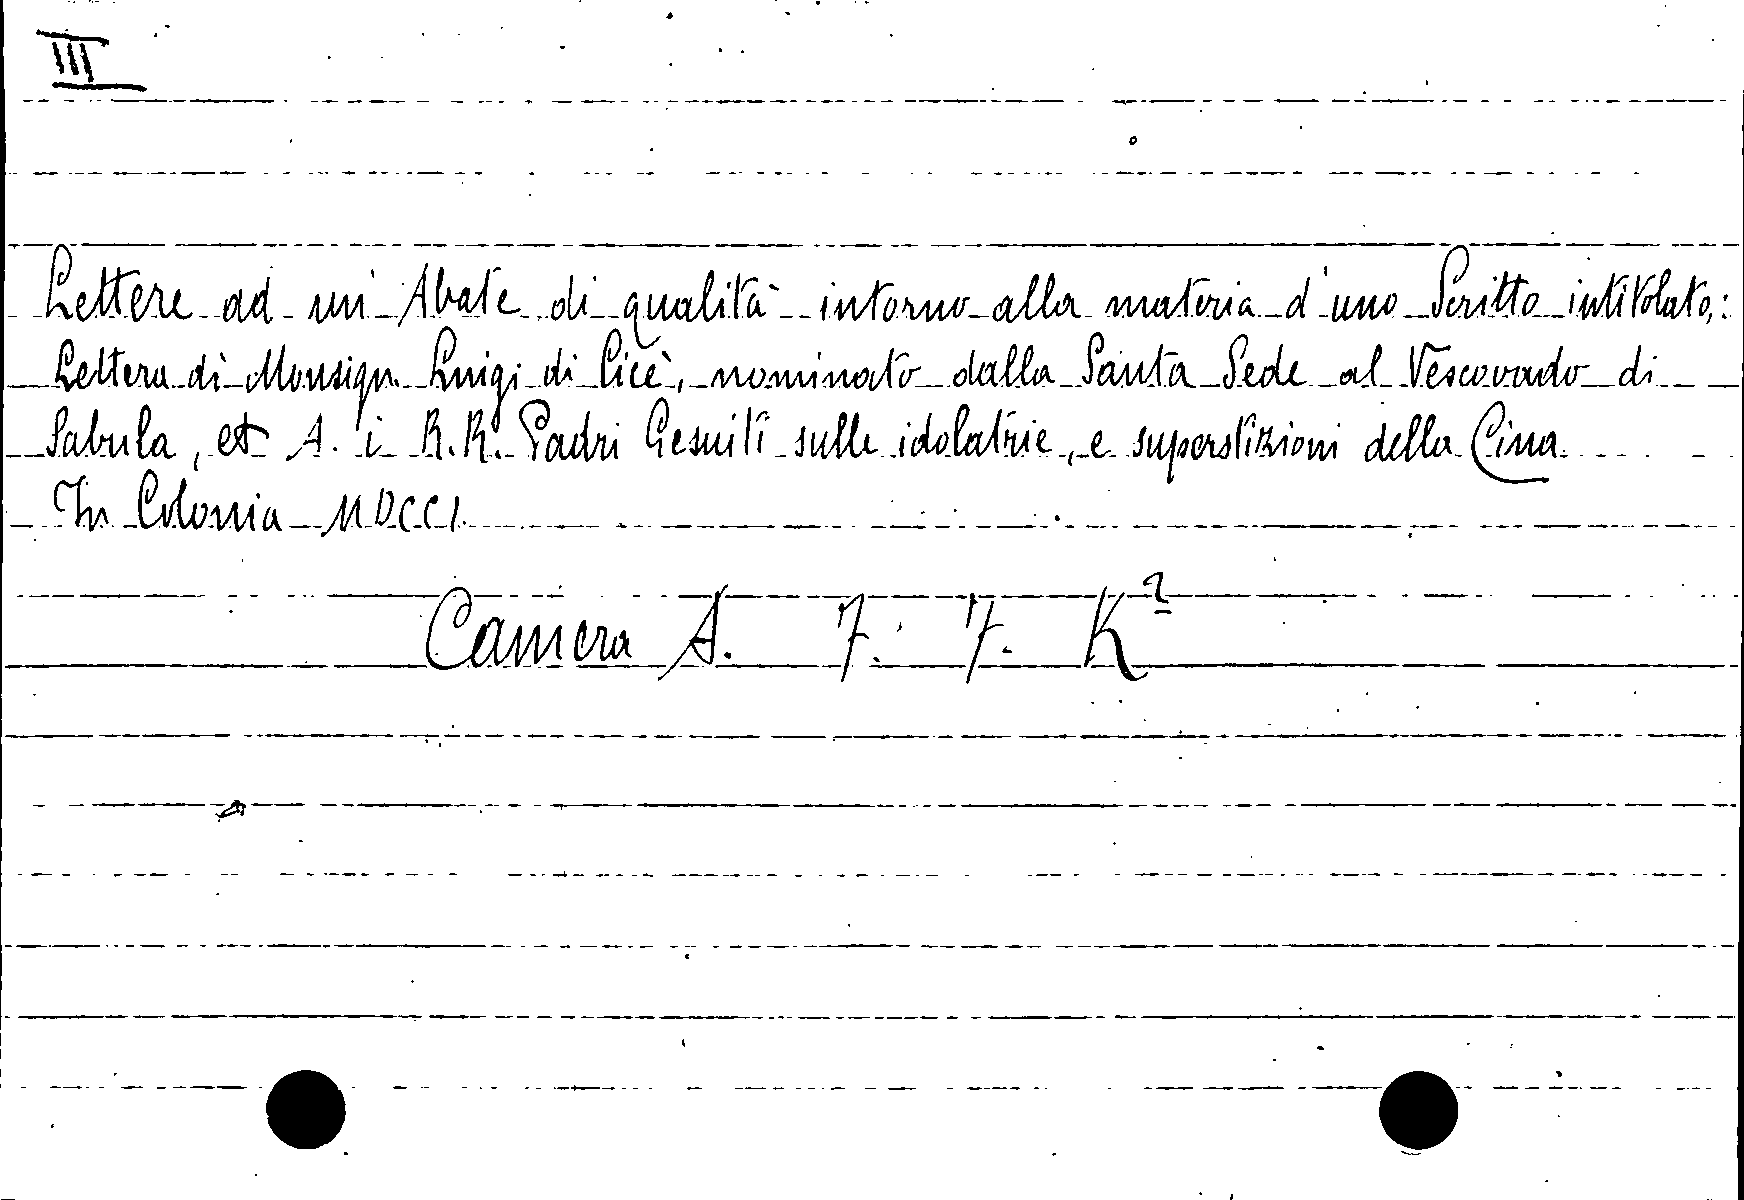 III
Lettere ad un' Abate di qualità intorno alla materia d'uno Scritto intitolato,:
Lettera di Monsign. Luigi di Cicè, nominato dalla Santa Sede al Vescovado di
Sabula, et A. i R.R. Padri Gesuiti sulle idolatrie, e superstizioni della Cina
In Colonia MDCCI.
Camera A. 7. 7. K²